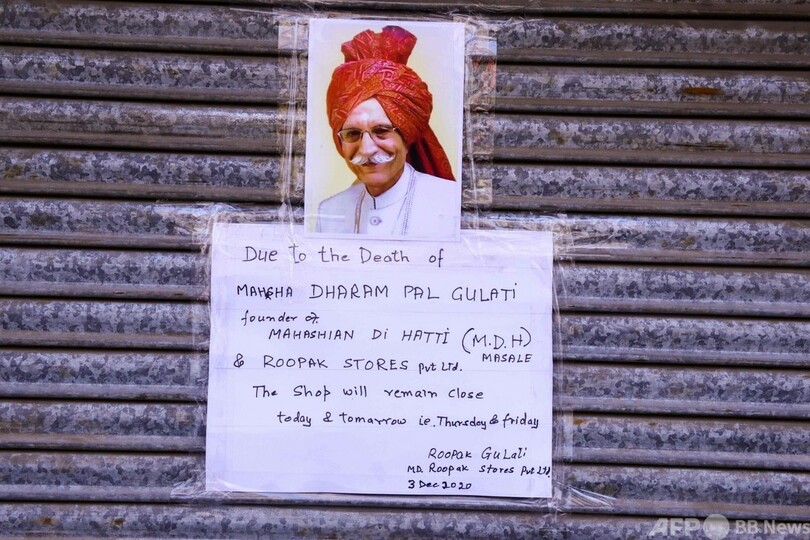 Due to the Death of
MAHASHA DHARAM PAL GULATI
founder of
MAHASHIAN Di HATTi (M.D.H)
MASALE
& ROOPAK STORES Pvt Ltd.
The Shop will remain close
today & tomorrow ie. Thursday & friday
ROOPAK GULATi
MD. Roopak Stores Pvt Ltd
3 Dec 2020
AFP BB News